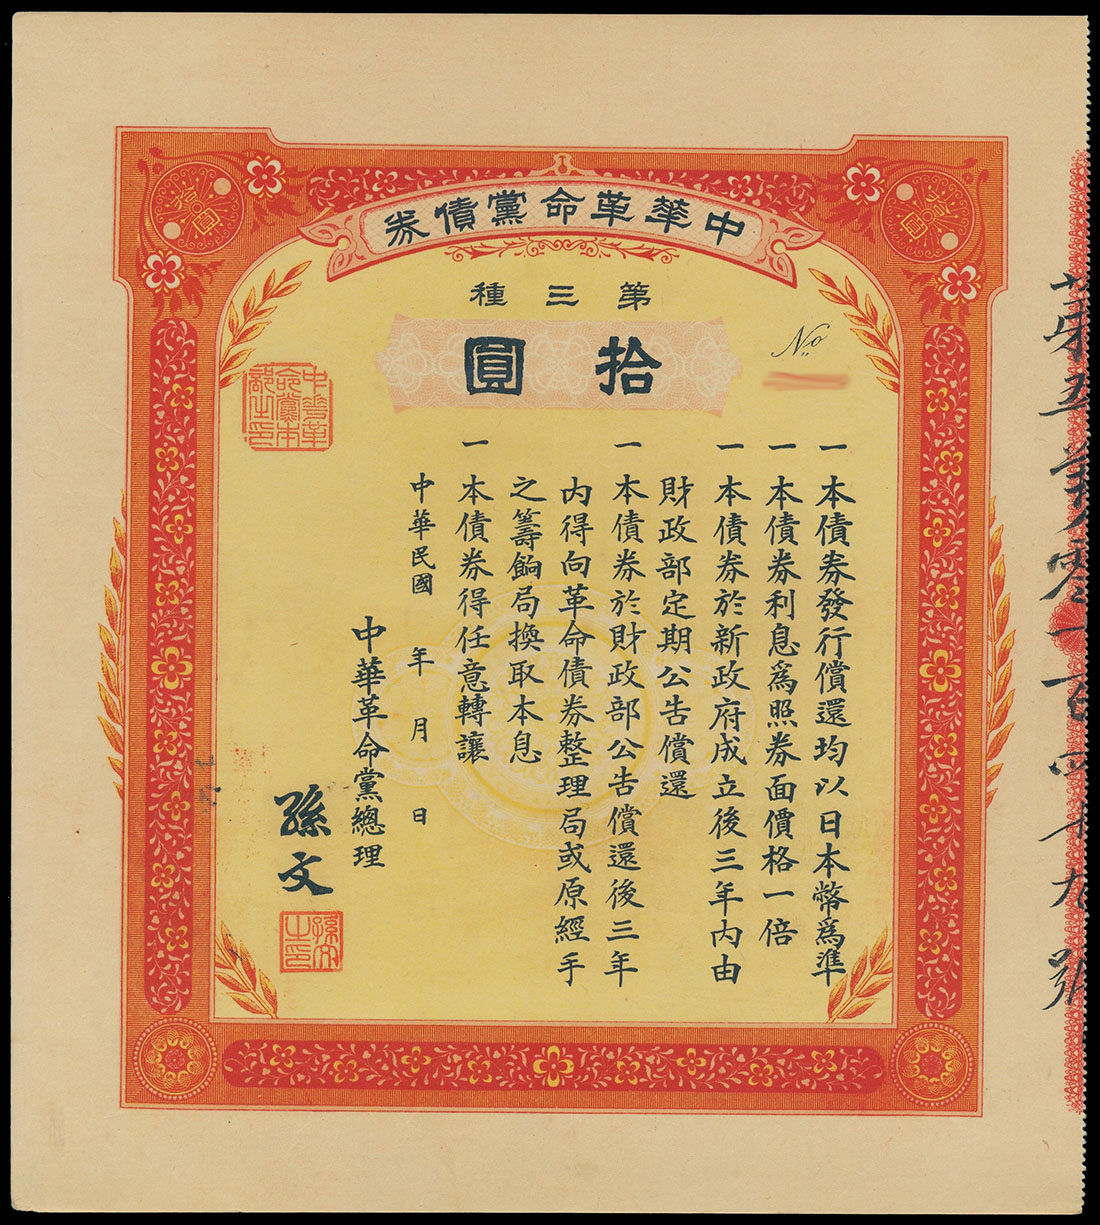 中華革命黨債券
第三種
拾圓
No
拾圓
拾圓
一本債券發行償還均以日本幣為準
一本債券利息為照券面價格一倍
一本債券於新政府成立後三年內由
財政部定期公告償還
一本債券於財政部公告償還後三年
內得向革命債券整理局或原經手
之籌餉局換取本息
一本債券得任意轉讓
中華民國 年 月 日
中華革命黨總理
孫文
中華革命黨本部之印
孫文之印